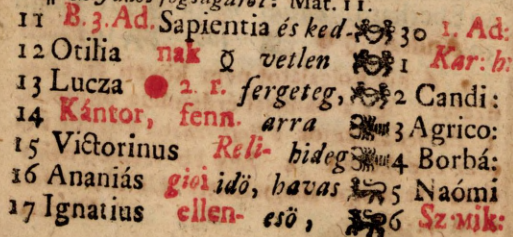 Mat. 11.
11 B. 3. Ad. Sapientia és ked- 30 1. Ad:
12 Otilia nak ☿ vetlen 1 Kar: b:
13 Lucza ● 2. r. fergeteg, 2 Candi:
14 Kántor, fenn. arra 3 Agrico:
15 Victorinus Reli- hideg 4 Borbá:
16 Ananiás gioi idö, havas 5 Naómi
17 Ignatius ellen- esö, 6 Sz: mik: